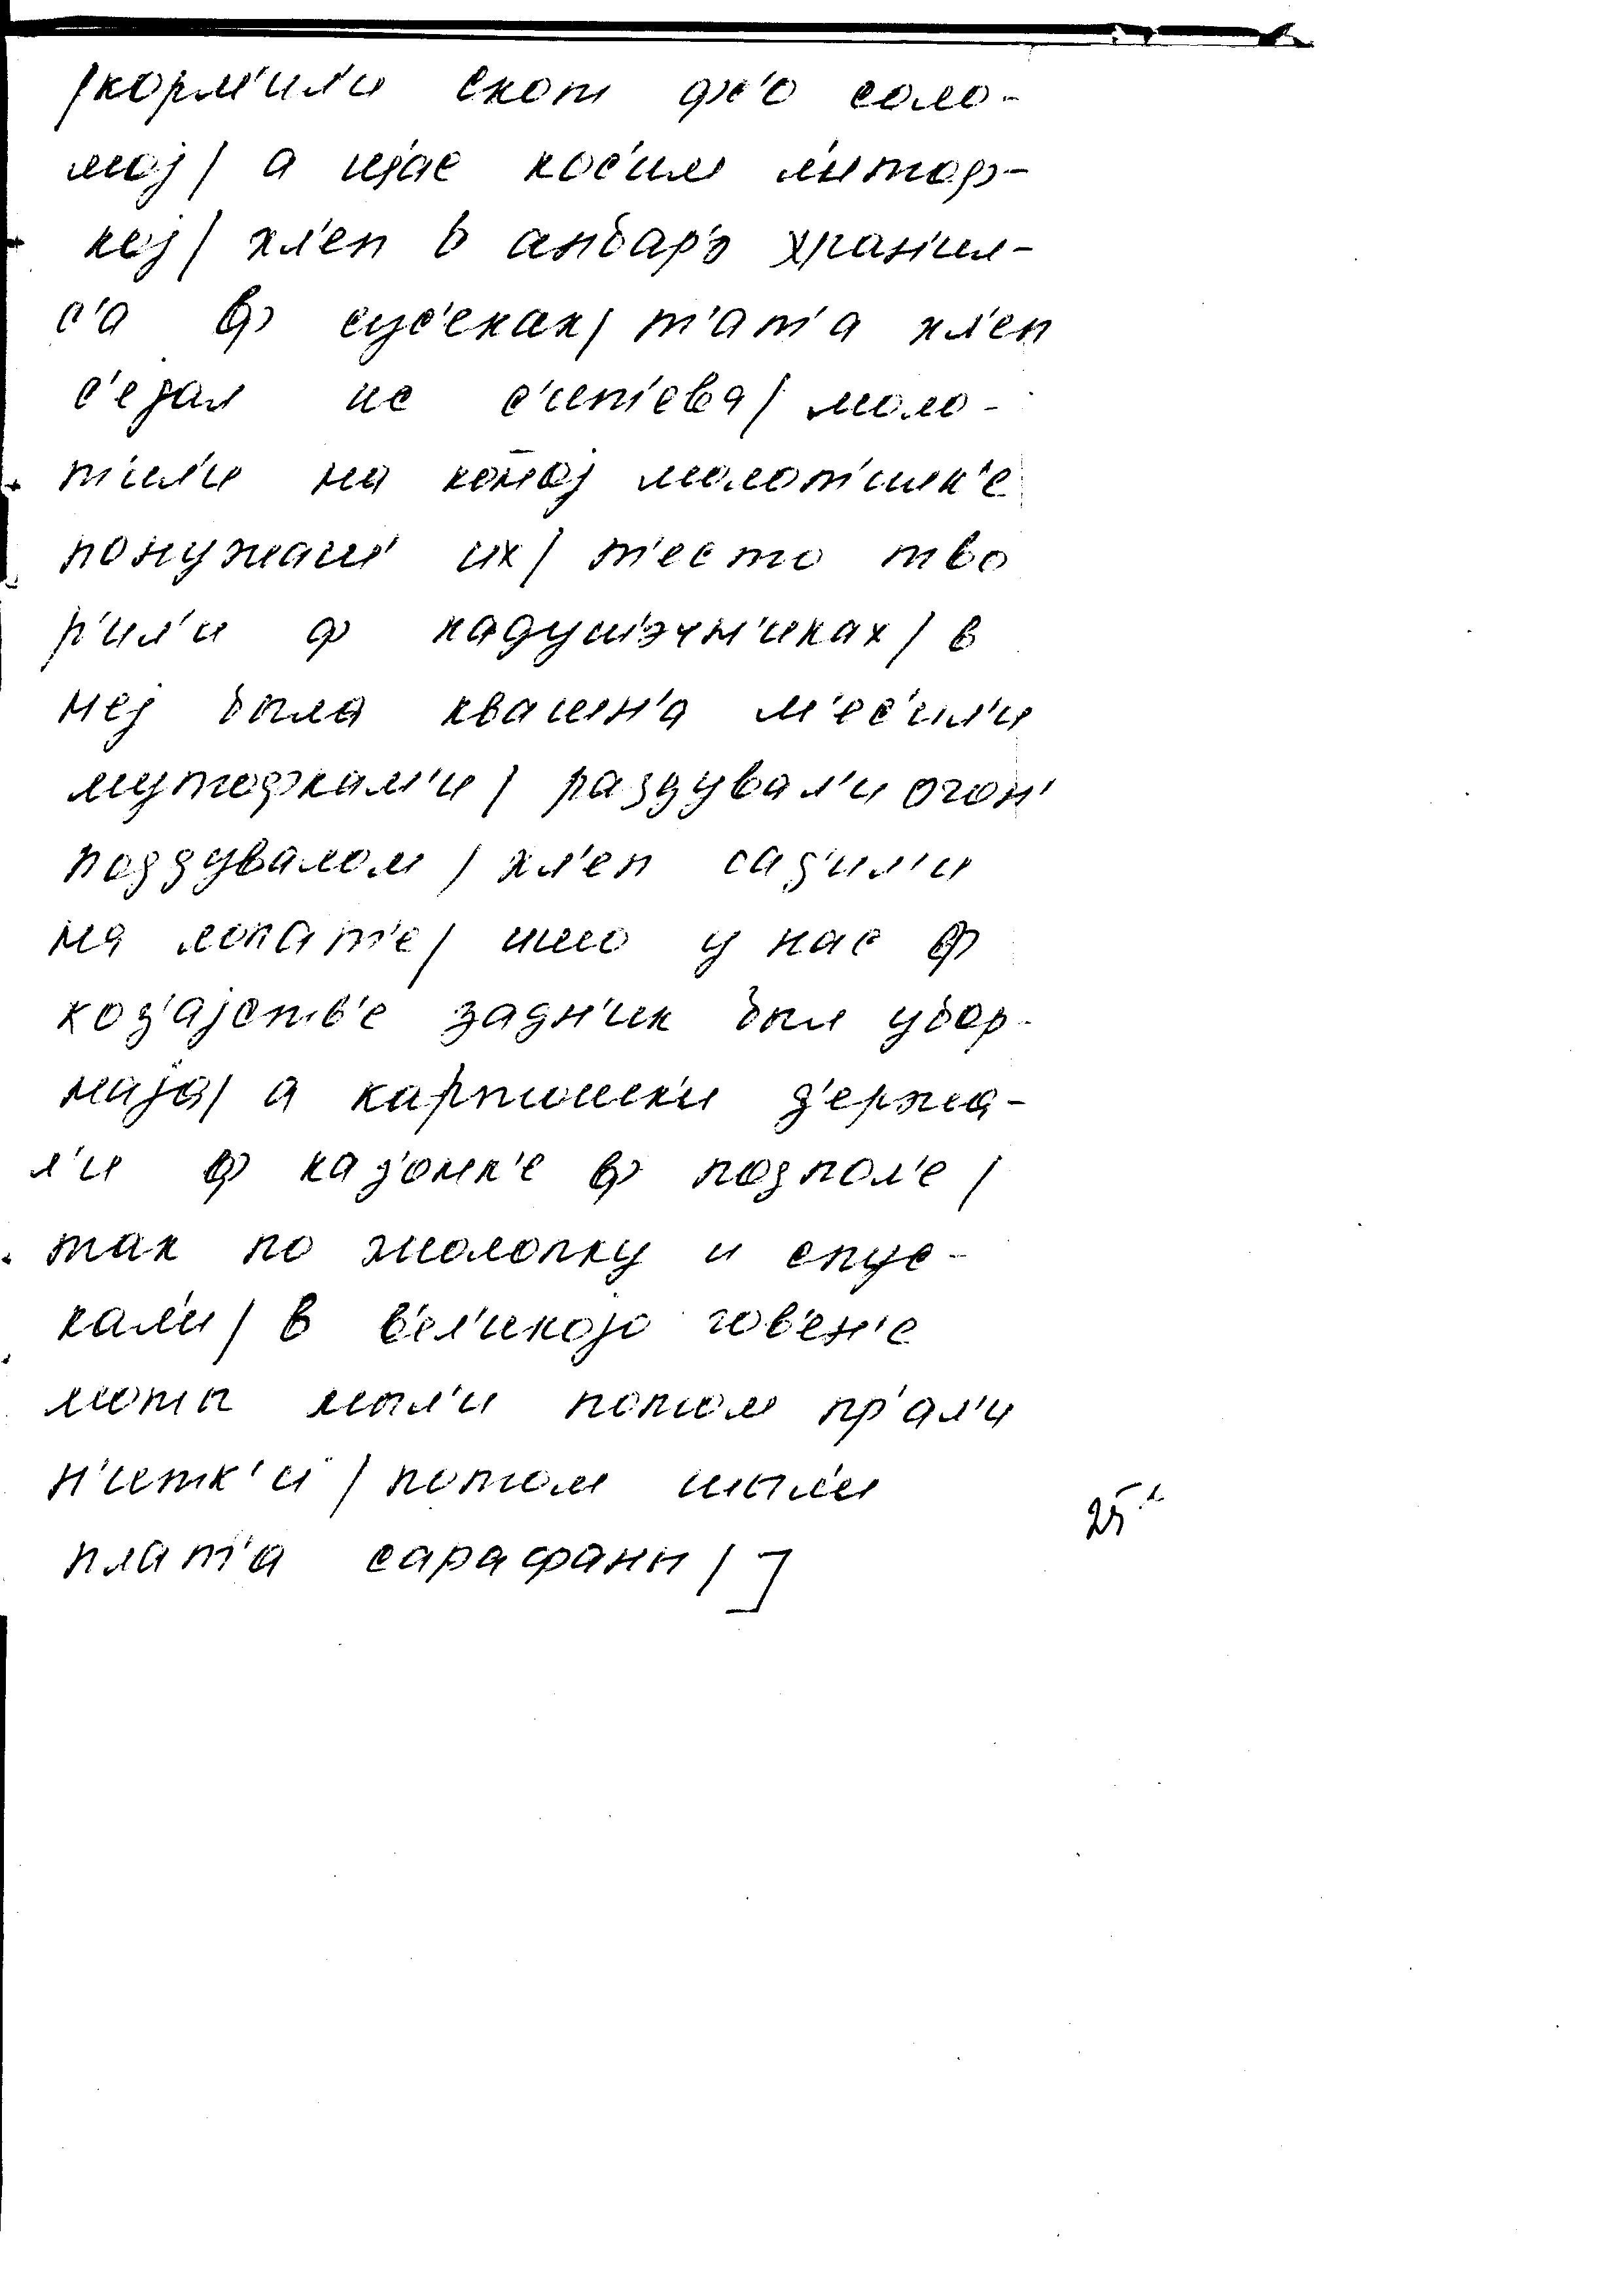 /корм'ил'и скот фс'о соло-
мој/ а щ́ас кос'им л'итоф-
кој/ хл'еп в анбар'э хран'ил-
с'а ф сус'еках/ т'ат'а хл'еп
с'ејал ис с'ит'ева/ моло-
т'ил'и на конној молот'илк'е
понужал'и их/ т'есто тво
р'ил'и ф кадушэчн'иках/ в
неј была квашн'а м'ес'ил'и
мутофкам'и/ раздувал'и огон'
поддувалом/ хл'еп сад'ил'и
на лопат'е/ ишшо у нас ф
хоз'ајств'е задн'ик был убор-
наја/ а картошк'и д'ержа-
л'и ф каз'онк'е ф подпол'е/
так по жолопку и спус-
кал'и/ в в'ел'икојо гов'ен'е
моты мыл'и потом пр'ал'и
н'итк'и/ потом шыл'и
плат'а сарафаны/]
25